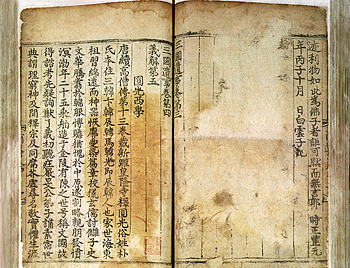 迹利物如此爲佛子者詎可默而無言耶 時正豊元
年丙子十月 日白雲子記
三國遺事卷第三
三國遺事卷第四
義解第五
圓光西學
唐續高僧傳第十三卷載新羅皇隆寺釋圓光俗姓朴
氏本住三韓卞韓辰韓馬韓光即辰韓人也家世海東
祖習綿遠而神器恢廓愛染篇章挍獵玄儒討讎子史
文華騰翥於韓服博贍猶愧於中原遂割略親朋發憤
溟渤年二十五乘舶造于金陵有陳之世號稱文國故
得諮考先疑詢猷了義初聽莊嚴旻公弟子講素霑世
典謂理窮神及聞釋宗反同腐芥虛尋名教實懼生涯